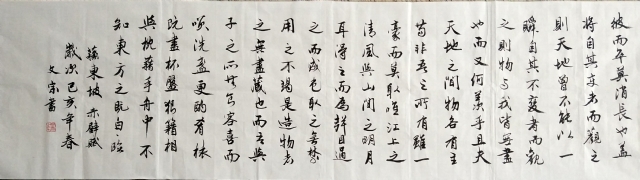 彼而卒莫消長也蓋
將自其变者而觀之
則天地曾不能以一
瞬自其不變者而觀
之則物与我皆無盡
也而又何羨乎且夫
天地之間物各有主
苟非吾之所有雖一
毫而莫取唯江上之
清風與山间之明月
耳得之而為聲目遇
之而成色取之無禁
用之不竭是造物者
之無盡藏也而吾與
子之所共适客喜而
笑洗盏更酌肴核
既盡杯盤狼藉相
與枕藉乎舟中不
知東方之既白
蘇東坡赤壁賦
歲次己亥年春
文宗書